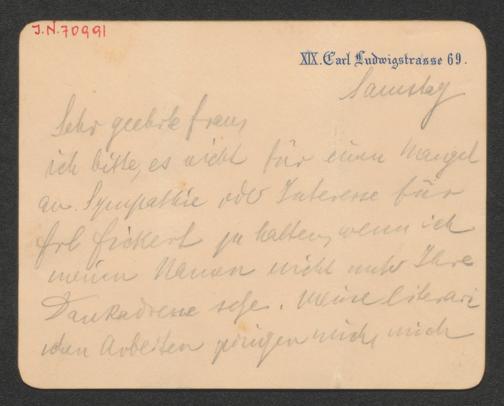 J.N. 70991
XIX. Carl Ludwigstrasse 69.
Samstag
Sehr geehrte Frau,
ich bitte, es nicht für einen Mangel
an Sympathie oder Interesse für
Frl Fickert zu halten, wenn ich
meinen Namen nicht unter Ihre
Dankadresse setze. Meine literari
schen Arbeiten zwingen mich, mich